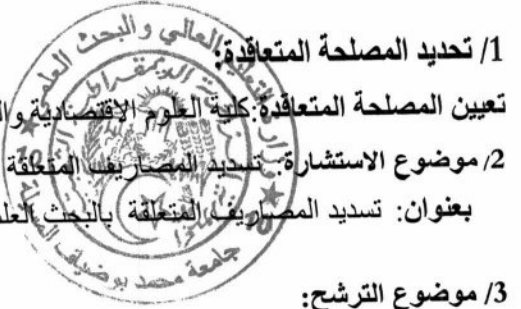 1/ تحديد المصلحة المتعاقدة:
تعيين المصلحة المتعاقدة: كلية العلوم الاقتصادية و
2/ موضوع الاستشارة: تسديد المصاريف المتعلقة
بعنوان: تسديد المصاريف المتعلقة بالبحث
3/ موضوع الترشح:
التعليم العالي و البحث العلمي
جامعة محمد بوضياف المسيلة